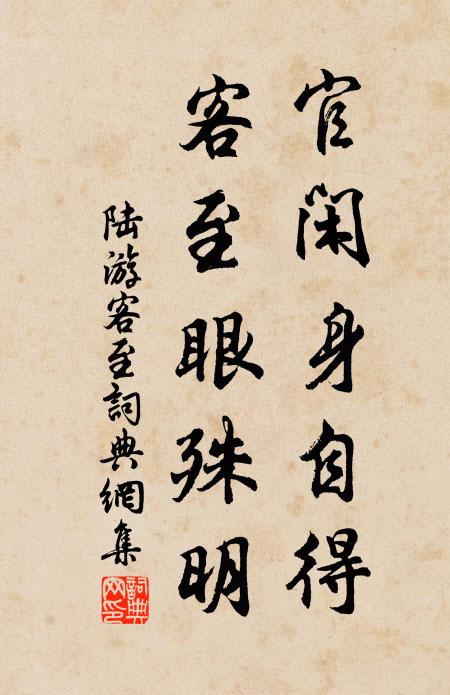 官闲身自得
客至眼殊明
陆游客至詞典網集
詞典網印